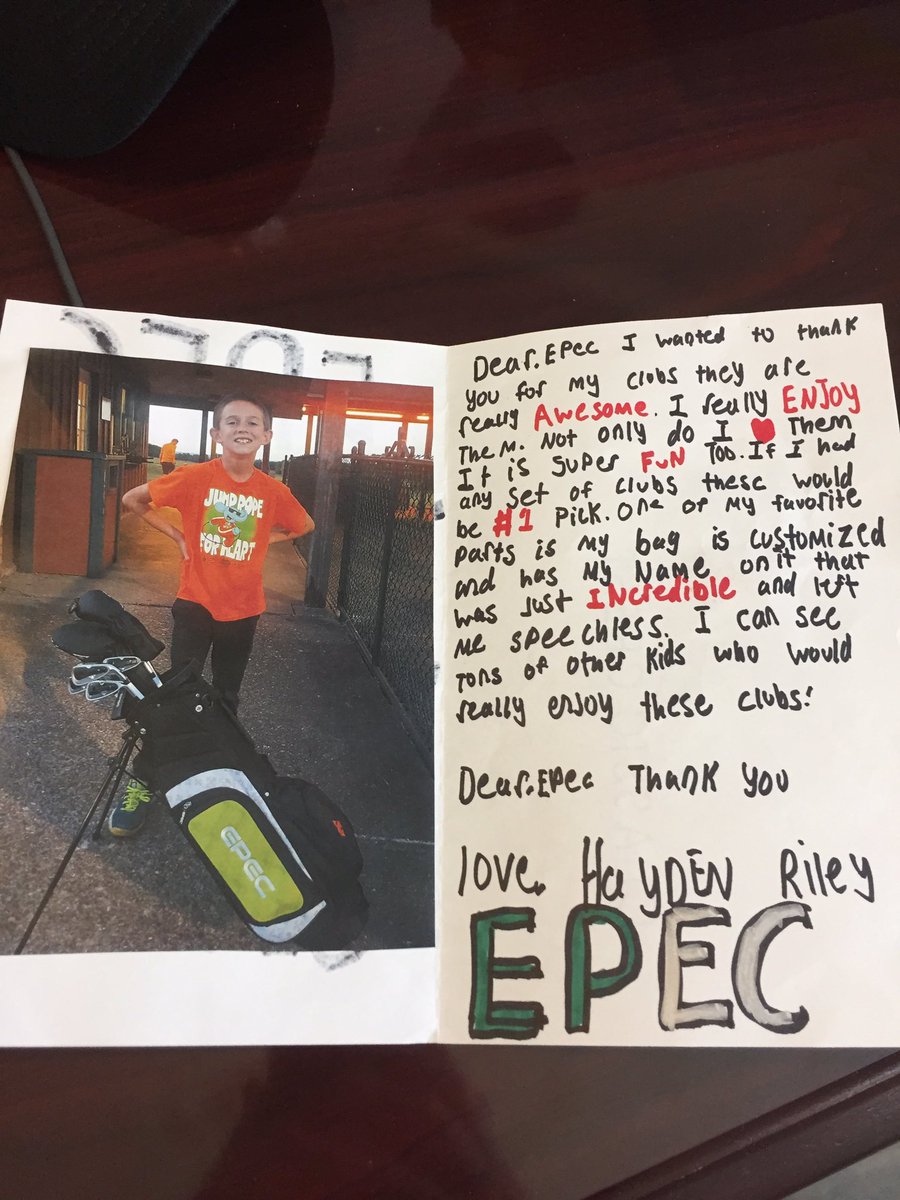 JUMP ROPE
FOR HEART
EPEC
Dear.EPec I wanted to thank
you for my clubs they are
really Awesome. I really ENJOY
THEM. Not only do I ❤ Them
It is super FuN Too. If I had
any set of clubs these would
be #1 pick. One of my favorite
parts is my bag is customized
and has my Name on it that
was just INCredible and left
me speechless. I can see
Tons of other kids who would
really enjoy these clubs!
Dear.EPec Thank you
love. HayDEN Riley
EPEC